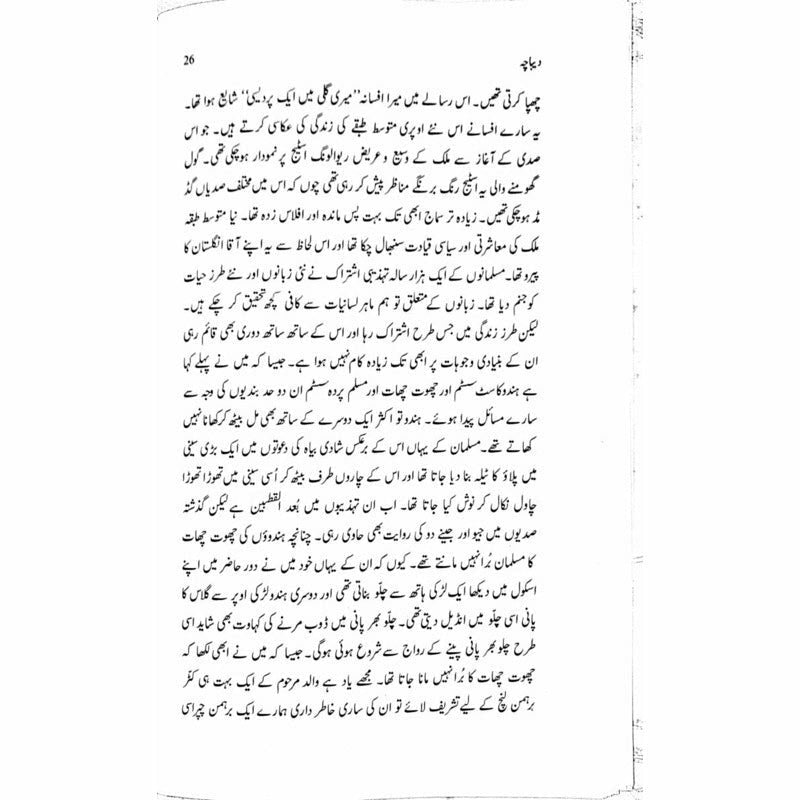 دیباچہ
26
چھپا کرتی تھیں۔ اس رسالے میں میرا افسانہ ”میری گلی میں ایک پردیسی“ شایع ہوا تھا۔
یہ سارے افسانے اس نئے اوپری متوسط طبقے کی زندگی کی عکاسی کرتے ہیں۔ جو اس
صدی کے آغاز سے ملک کے وسیع و عریض ریوالونگ اسٹیج پر نمودار ہوچکی تھی۔ گول
گھومنے والی یہ اسٹیج رنگ برنگے مناظر پیش کر رہی تھی چوں کہ اس میں مختلف صدیاں گڈ
مڈ ہوچکی تھیں۔ زیادہ تر سماج ابھی تک بہت پس ماندہ اور افلاس زدہ تھا۔ نیا متوسط طبقہ
ملک کی معاشرتی اور سیاسی قیادت سنبھال چکا تھا اور اس لحاظ سے یہ اپنے آقا انگلستان کا
پیرو تھا۔ مسلمانوں کے ایک ہزار سالہ تہذیبی اشتراک نے نئی زبانوں اور نئے طرز حیات
کو جنم دیا تھا۔ زبانوں کے متعلق تو ہم ماہر لسانیات سے کافی کچھ تحقیق کر چکے ہیں۔
لیکن طرز زندگی میں جس طرح اشتراک رہا اور اس کے ساتھ ساتھ دوری بھی قائم رہی
ان کے بنیادی وجوہات پر ابھی تک زیادہ کام نہیں ہوا ہے۔ جیسا کہ میں نے پہلے کہا
ہے ہندو کاسٹ سسٹم اور چھوت چھات اور مسلم پردہ سسٹم ان دو حد بندیوں کی وجہ سے
سارے مسائل پیدا ہوئے۔ ہندو تو اکثر ایک دوسرے کے ساتھ بھی مل بیٹھ کر کھانا نہیں
کھاتے تھے۔ مسلمان کے یہاں اس کے برعکس شادی بیاہ کی دعوتوں میں ایک بڑی سینی
میں پلاؤ کا ٹیلہ بنا دیا جاتا تھا اور اس کے چاروں طرف بیٹھ کر اُسی سینی میں تھوڑا تھوڑا
چاول نکال کر نوش کیا جاتا تھا۔ اب ان تہذیبوں میں بُعد القطبین ہے لیکن گذشتہ
صدیوں میں جیو اور جینے دو کی روایت بھی حاوی رہی۔ چنانچہ ہندوؤں کی چھوت چھات
کا مسلمان بُرا نہیں مانتے تھے۔ کیوں کہ ان کے یہاں خود میں نے دور حاضر میں اپنے
اسکول میں دیکھا ایک لڑکی ہاتھ سے چلّو بناتی تھی اور دوسری ہندو لڑکی اوپر سے گلاس کا
پانی اسی چلّو میں انڈیل دیتی تھی۔ چلّو بھر پانی میں ڈوب مرنے کی کہاوت بھی شاید اسی
طرح چلّو بھر پانی پینے کے رواج سے شروع ہوئی ہوگی۔ جیسا کہ میں نے ابھی لکھا کہ
چھوت چھات کا بُرا نہیں مانا جاتا تھا۔ مجھے یاد ہے والد مرحوم کے ایک بہت ہی کٹر
برہمن لنچ کے لیے تشریف لائے تو ان کی ساری خاطر داری ہمارے ایک برہمن چپراسی